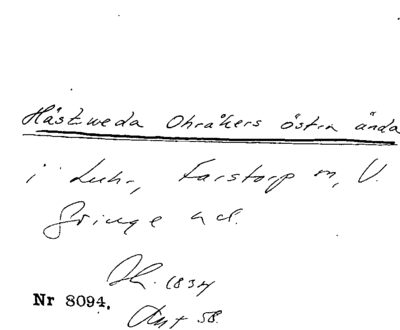 Hästveda Ohråkers östra ända
i Luhr, Farstorp m, V.
Gringe hd.
Sk. 1834
Nr 8094.
Ant 58.